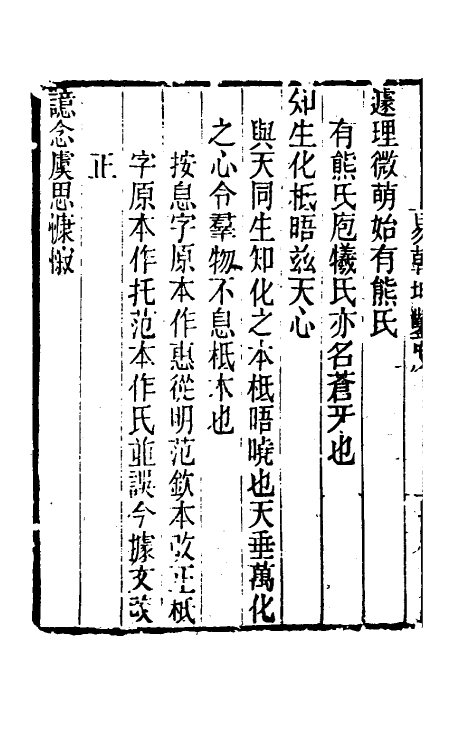 易乾坤鑿度
遽理微萌始有熊氏
有熊氏庖犧氏亦名蒼牙也
知生化柢晤玆天心
與天同生知化之本柢晤曉也天垂萬化
之心令羣物不息柢本也
按息字原本作惠從明范欽本改正柢
字原本作托范本作氏並誤今據文改
正
譩念虞思慷惙